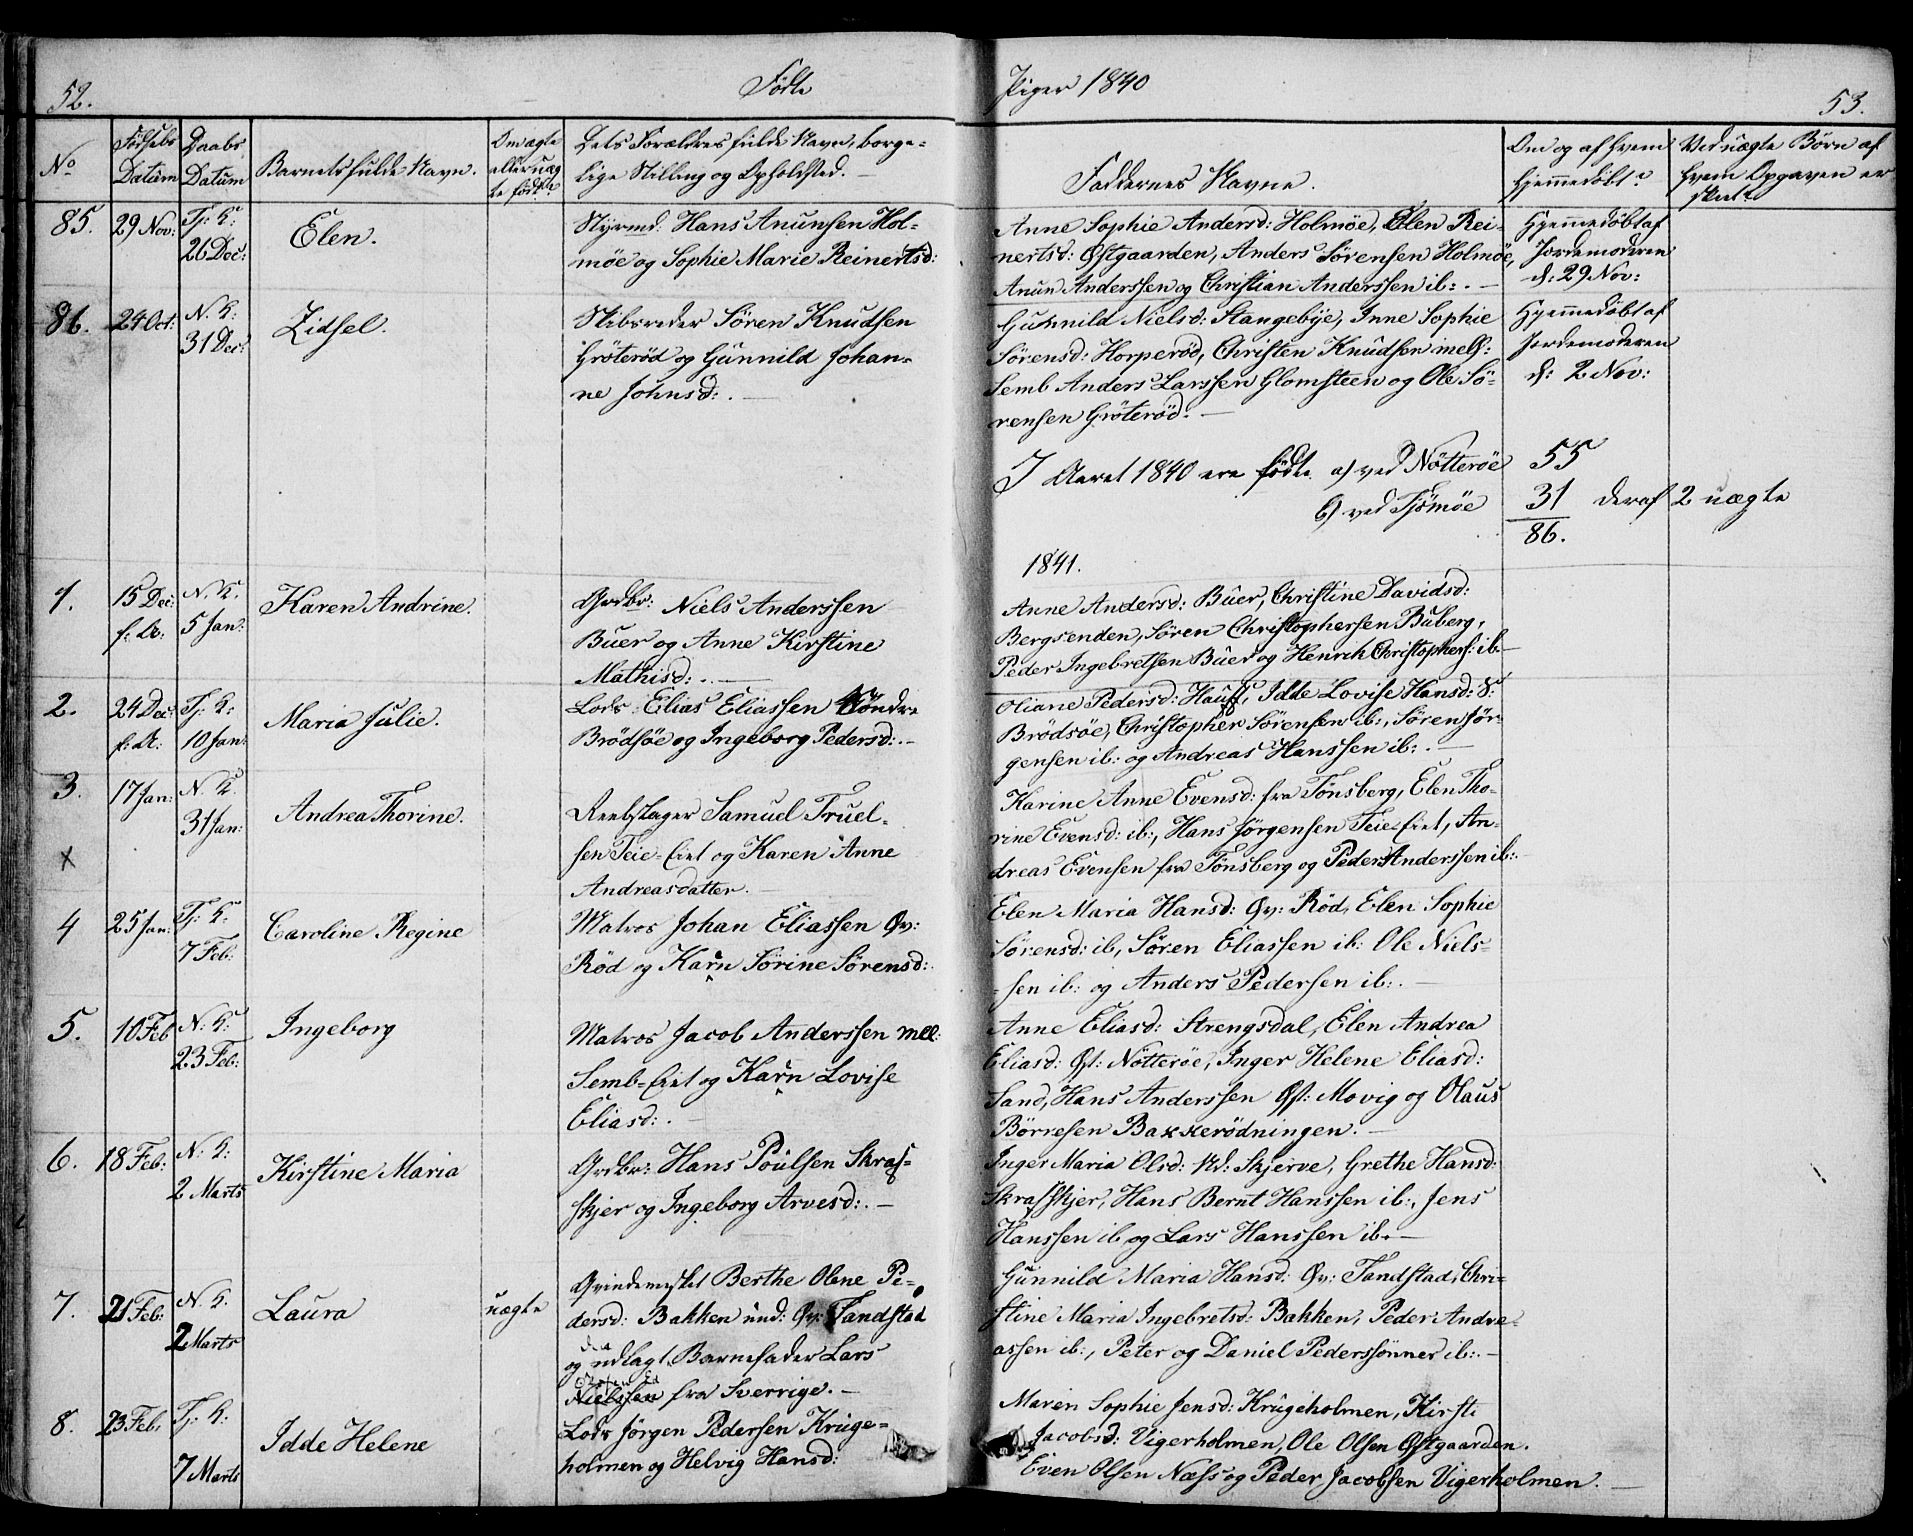 52.
Födte
No
Födsels
Datum
Daabs
Datum
Barnets fulde Navn.
Om ægte
eller uæg
te født?
Dets Forældres fulde Navn, borge-
lige Stilling og Opholdsted.
85.
29 Nov:
Tj: K:
26 Dec:
Elen.
Styrmd: Hans Anunsen Hol-
möe og Sophie Marie Reinertsd:
86.
24 Oct:
N. K:
31 Dec:
Zidsel.
Skibsreder Sören Knudsen
Gröteröd og Gunnild Johan-
ne Johnsd: .
1.
15 Dec:
f: A:
N. K.
5 Jan:
Karen Andrine.
Grdbr: Niels Anderssen
Buer og Anne Kirstine
Mathisd: .
2.
24 Dec:
f: A:
Tj: K:
10 Jan:
Maria Julie.
Lods Elias Eliassen Nöndre
Brödsöe og Ingeborg Pedersd: .
3.
17 Jan:
N. K.
31 Jan:
Andrea Thorine.
Reebslager Samuel Truel-
sen Teie-Eiet og Karen Anne
Andreasdatter.
x
4
25 Jan:
Tj: K:
7 Feb:
Caroline Regine
Matros Johan Eliassen Öv:
Röd og Karn Sörine Sörensd:
5.
10 Feb
N: K:
23 Feb:
Ingeborg
Matros Jacob Anderssen mell:
Semb-Eiet og Karn Lovise
Eliasd: .
6.
18 Feb:
N. K:
2 Marts
Kirstine Maria
Grdbr: Hans Poulsen Skraf-
skjer og Ingeborg Arvesd: .
7.
21 Feb:
N. K.
2 Marts
Laura
uægte
Qvindemsket Berthe Olene Pe-
dersd: Bakken und: Öv: Tandstad
og udlagt Barnefader Lars
Nielssen fra Sverrige.
8.
23 Feb:
Tj: K:
7 Marts
Idde Helene
Lods Jörgen Pedersen Kruge-
holmen og Helvig Hansd:
Piger 1840
53.
Faddernes Navne.
Om og af hvem
hjemmedøbt?
Ved uægte Børn af
hvem Opgaven er
skeet?
Anne Sophie Andersd: Holmöe, Elen Rei-
nertsd: Östgaarden, Anders Sörensen Holmöe,
Anun Anderssen og Christian Anderssen ib: .
Hjemmedöbt af
Jordemoderen
d: 29 Nov:
Gunnild Nielsd: Stangebye, Inne Sophie
Sörensd: Horperöd, Christen Knudsen mell:
Semb Anders Larssen Glomsteen og Ole Sö-
rensen Gröteröd.
Hjemmedöbt af
Jordemoderen
d: 2 Nov:
I Aaret 1840 ere födte a) ved Nötteröe 55
b) ved Tjömöe 31 deraf 2 uægte
86.
1841.
Anne Andersd: Buer, Christine Davidsd:
Bergsenden, Sören Christophersen Buberg,
Peder Ingebretsen Buer og Henrik Christophers: ib.
Oliane Pedersd: Hauf, Idde Lovise Hansd: S:
Brödsöe, Christopher Sörensen ib:, Sören Jör-
gensen ib: og Andreas Hanssen ib: .
Karine Anne Evensd: fra Tönsberg, Elen Tho-
rine Evensd: ib:, Hans Jörgensen Teie-Eiet, An-
dreas Evensen fra Tönsberg og Peder Anderssen ib: .
Elen Maria Hansd: Öv: Röd, Elen Sophie
Sörensd: ib, Sören Eliassen ib: Ole Niels-
sen ib: og Anders Pedersen ib: .
Anne Eliasd: Strengsdal, Elen Andrea
Eliasd: Öst: Nötteröe, Inger Helene Eliasd:
Sand, Hans Anderssen Öst: Movig og Olaus
Börresen Bakkerödningen.
Inger Maria Olsd: Nd: Skjerve, Grethe Hansd:
Skrafskjer, Hans Bernt Hanssen ib:, Jens
Hanssen ib og Lars Hanssen ib.
Gunnild Maria Hansd: Öv: Tandstad, Chri-
stine Maria Ingebretsd: Bakken, Peder Andre-
assen ib:, Peter og Daniel Pederssönner ib: .
Maren Sophie Jensd: Krugeholmen, Kirsti
Jacobsd: Vigerholmen, Ole Olsen Östgaarden.
Even Olsen Næss og Peder Jacobsen Vigerholmen.